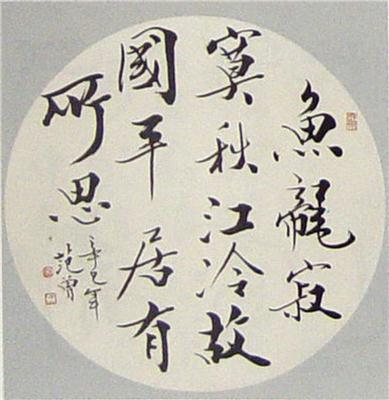 魚龍寂
寞秋江冷故
國平居有
所思
辛巳年
范曾